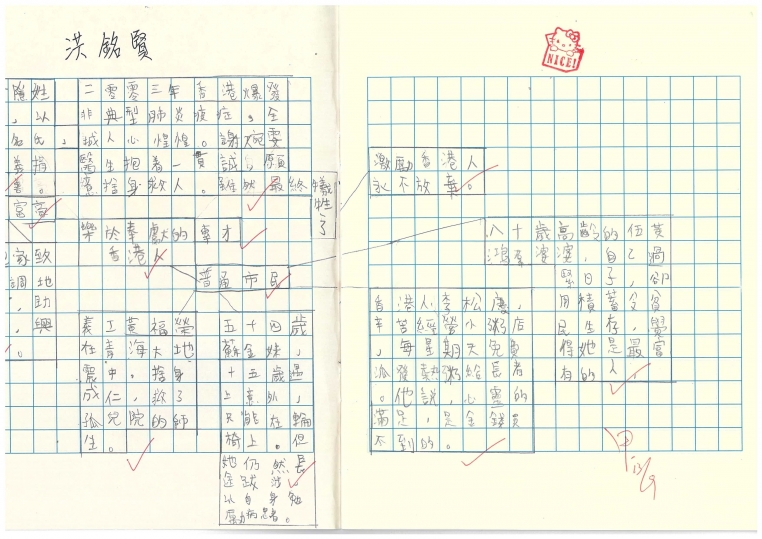 洪銘賢
隱姓
，以
名氏，
善捐
富豪
家致
調地
，助
，興
。
二零零三年香港爆發
非典型肺炎疫症，全
城人心惶惶。謝婉雯
醫生抱着一貫誠，願
捨身救人。雖然最終
犧牲了
樂於奉獻的專才
香港人
普通市民
義工黃福榮
在青海大地
震中，捨身
成仁，救了
孤兒院的師
生。
五十四歲
蘇金妹，
十五歲遇
上意外，
只能在輪
椅上。但
她仍然長
途跋涉，
以自身勉
勵病患者。
NICE!
激勵香港人
永不放棄。
八十歲高齡的伍黃
鴻婆婆，自己過
緊日子，卻
用積蓄父貧
民生存，覺
得她是最富
有的人，
香港人李松慶，
辛苦經營小粥店
，每星期天免費
派發熱粥給長者
。他說，心靈的
滿足，是金錢買
不到的。